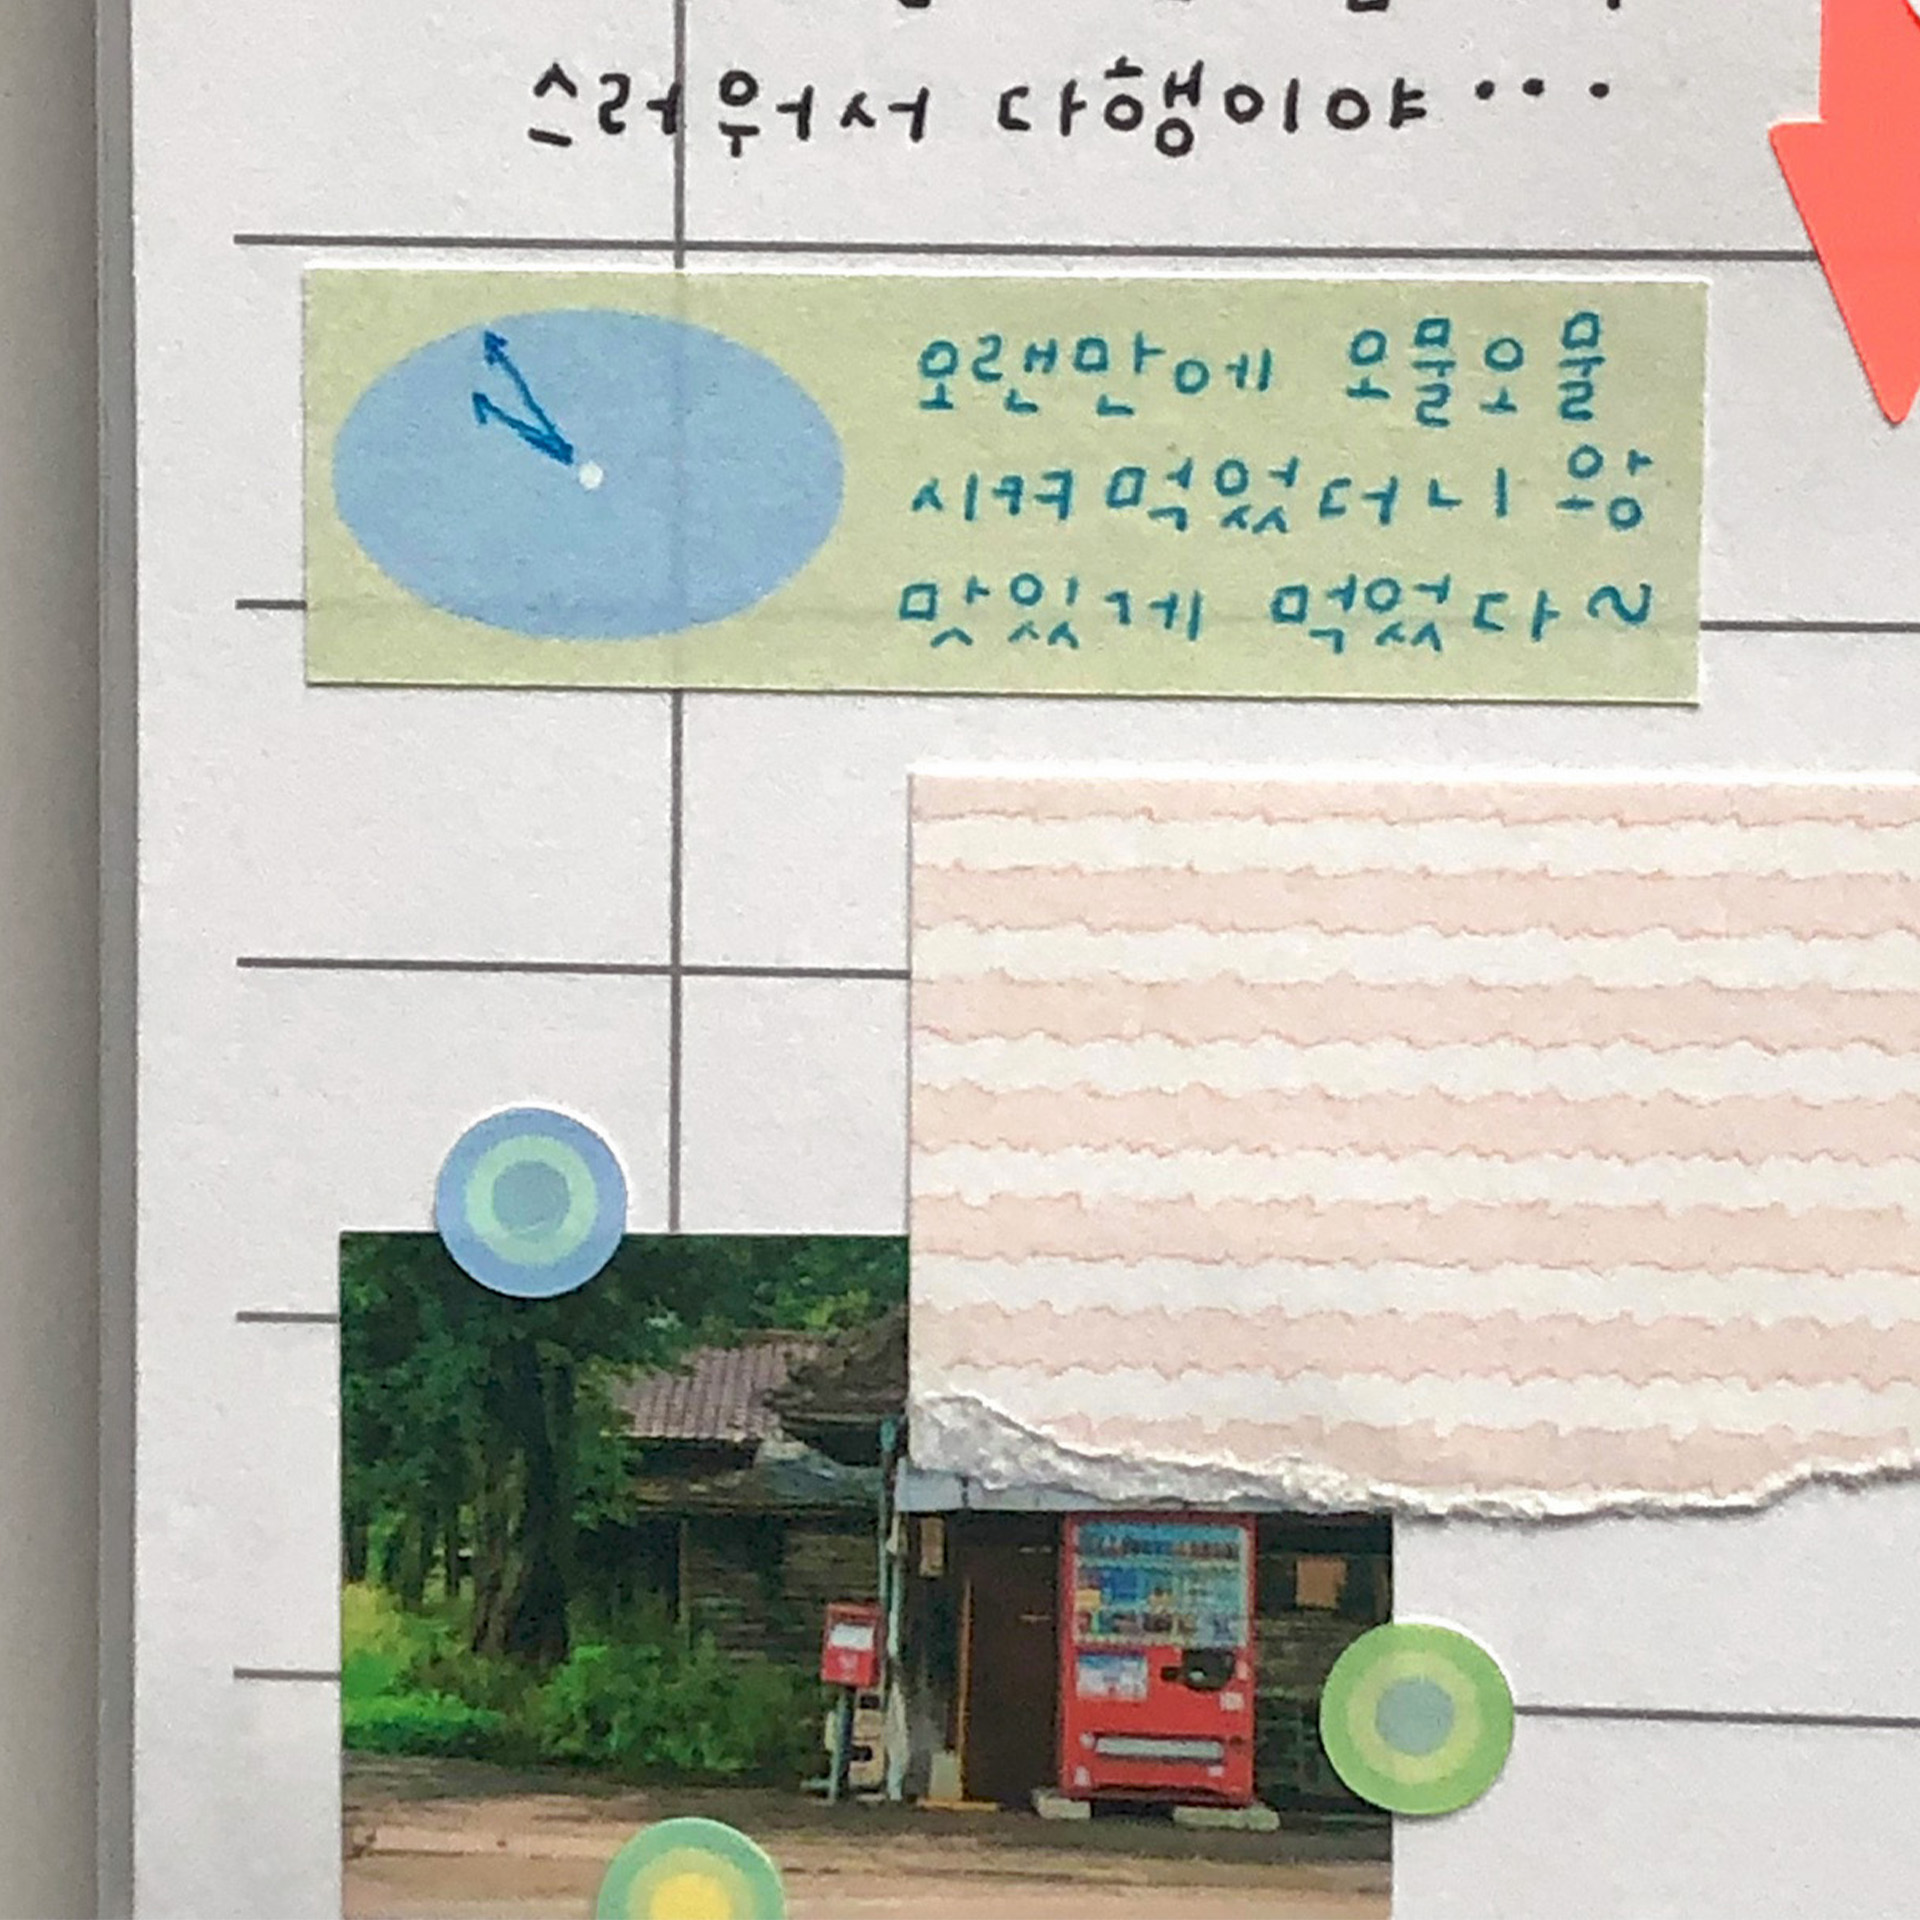 스러워서 다행이야...
오랜만에 오물오물
시켜 먹었더니 왕
맛있게 먹었다~